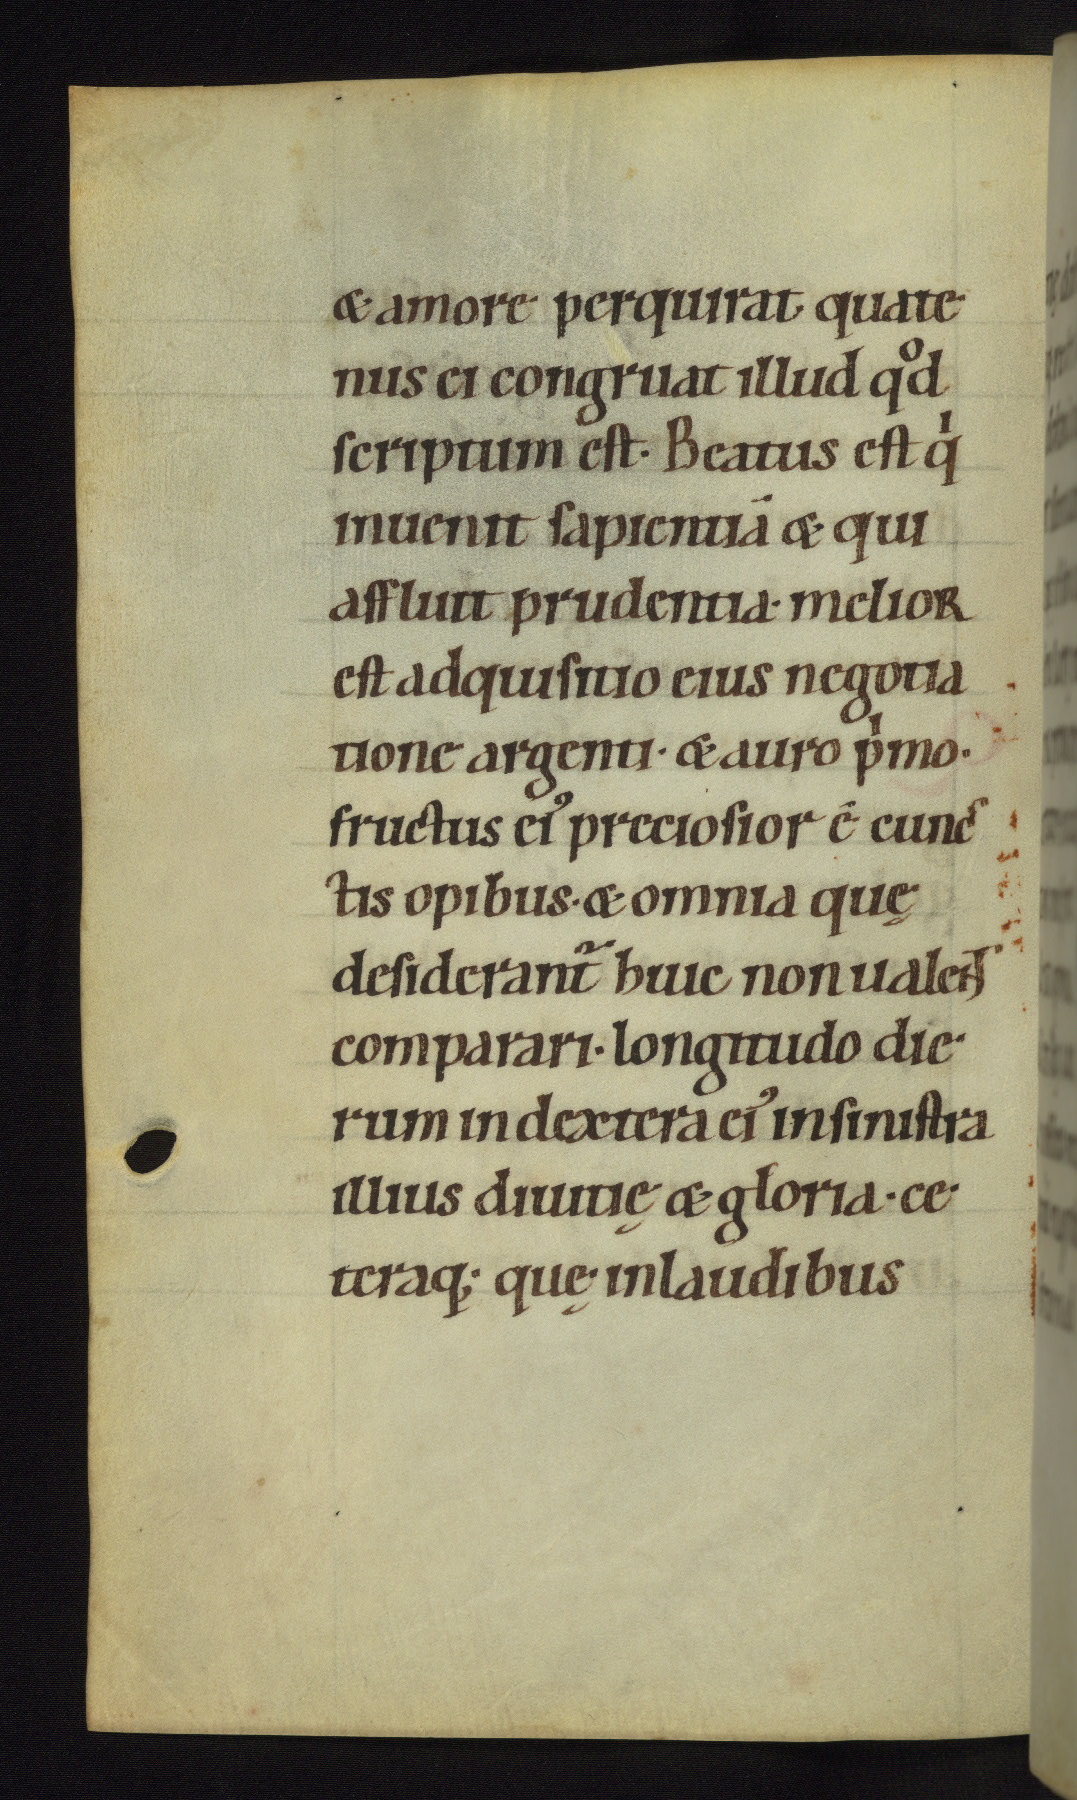 & amore perquirat quate
nus ei congruat illud qͦd
ſcriptum eſt. Beatus eſt qͥ
inuenit ſapientiā & qui
affluit prudentia· melior
eſt adquiſitio eius negotia
tione argenti· & auro pͥmo·
fructus eiꝰ precioſior ē cunc
tis opibus· & omnia quę
deſiderant᷑ huic non ualent
comparari· longitudo die
rum in dextera eiꝰ in ſiniſtra
illius diuitię & gloria· ce
teraq; quę in laudibus